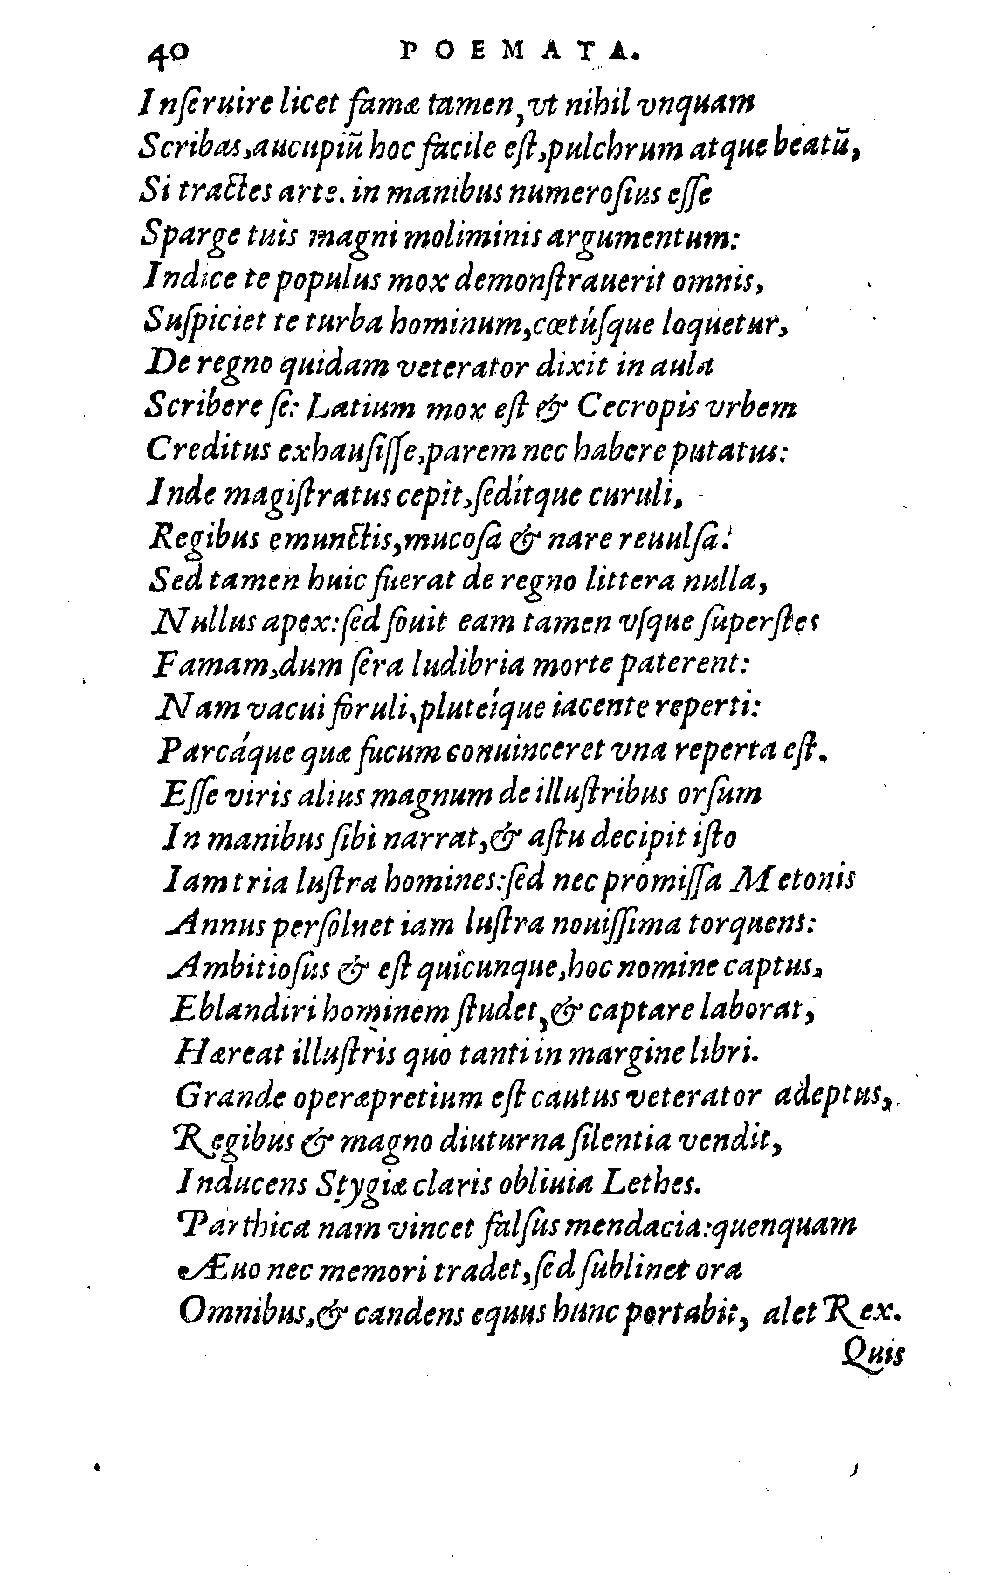 40 POEMATA.
Inſeruire licet famæ tamen, vt nihil vnquam
Scribas, aucupiū hoc facile eſt, pulchrum atque beatū,
Si tractes arte. in manibus numeroſius eſſe
Sparge tuis magni moliminis argumentum:
Indice te populus mox demonſtrauerit omnis,
Suſpiciet te turba hominum, cœtúſque loquetur,
De regno quidam veterator dixit in aula
Scribere ſe: Latium mox eſt & Cecropis vrbem
Creditus exhauſiſſe, parem nec habere putatus:
Inde magiſtratus cepit, ſedítque curuli,
Regibus emunctis, mucoſa & nare reuulſa:
Sed tamen huic fuerat de regno littera nulla,
Nullus apex: ſed fouit eam tamen vſque ſuperſtes
Famam, dum ſera ludibria morte paterent:
Nam vacui foruli, pluteíque iacente reperti:
Parcáque quæ fucum conuinceret vna reperta eſt.
Eſſe viris alius magnum de illuſtribus orſum
In manibus ſibi narrat, & aſtu decipit iſto
Iam tria luſtra homines: ſed nec promiſſa Metonis
Annus perſoluet iam luſtra nouiſſima torquens:
Ambitioſus & eſt quicunque, hoc nomine captus,
Eblandiri hominem ſtudet, & captare laborat,
Hæreat illuſtris quo tanti in margine libri.
Grande operæpretium eſt cautus veterator adeptus,
Regibus & magno diuturna ſilentia vendit,
Inducens Stygiæ claris obliuia Lethes.
Parthica nam vincet falſus mendacia: quenquam
Æuo nec memori tradet, ſed ſublinet ora
Omnibus, & candens equus hunc portabit, alet Rex.
Quis